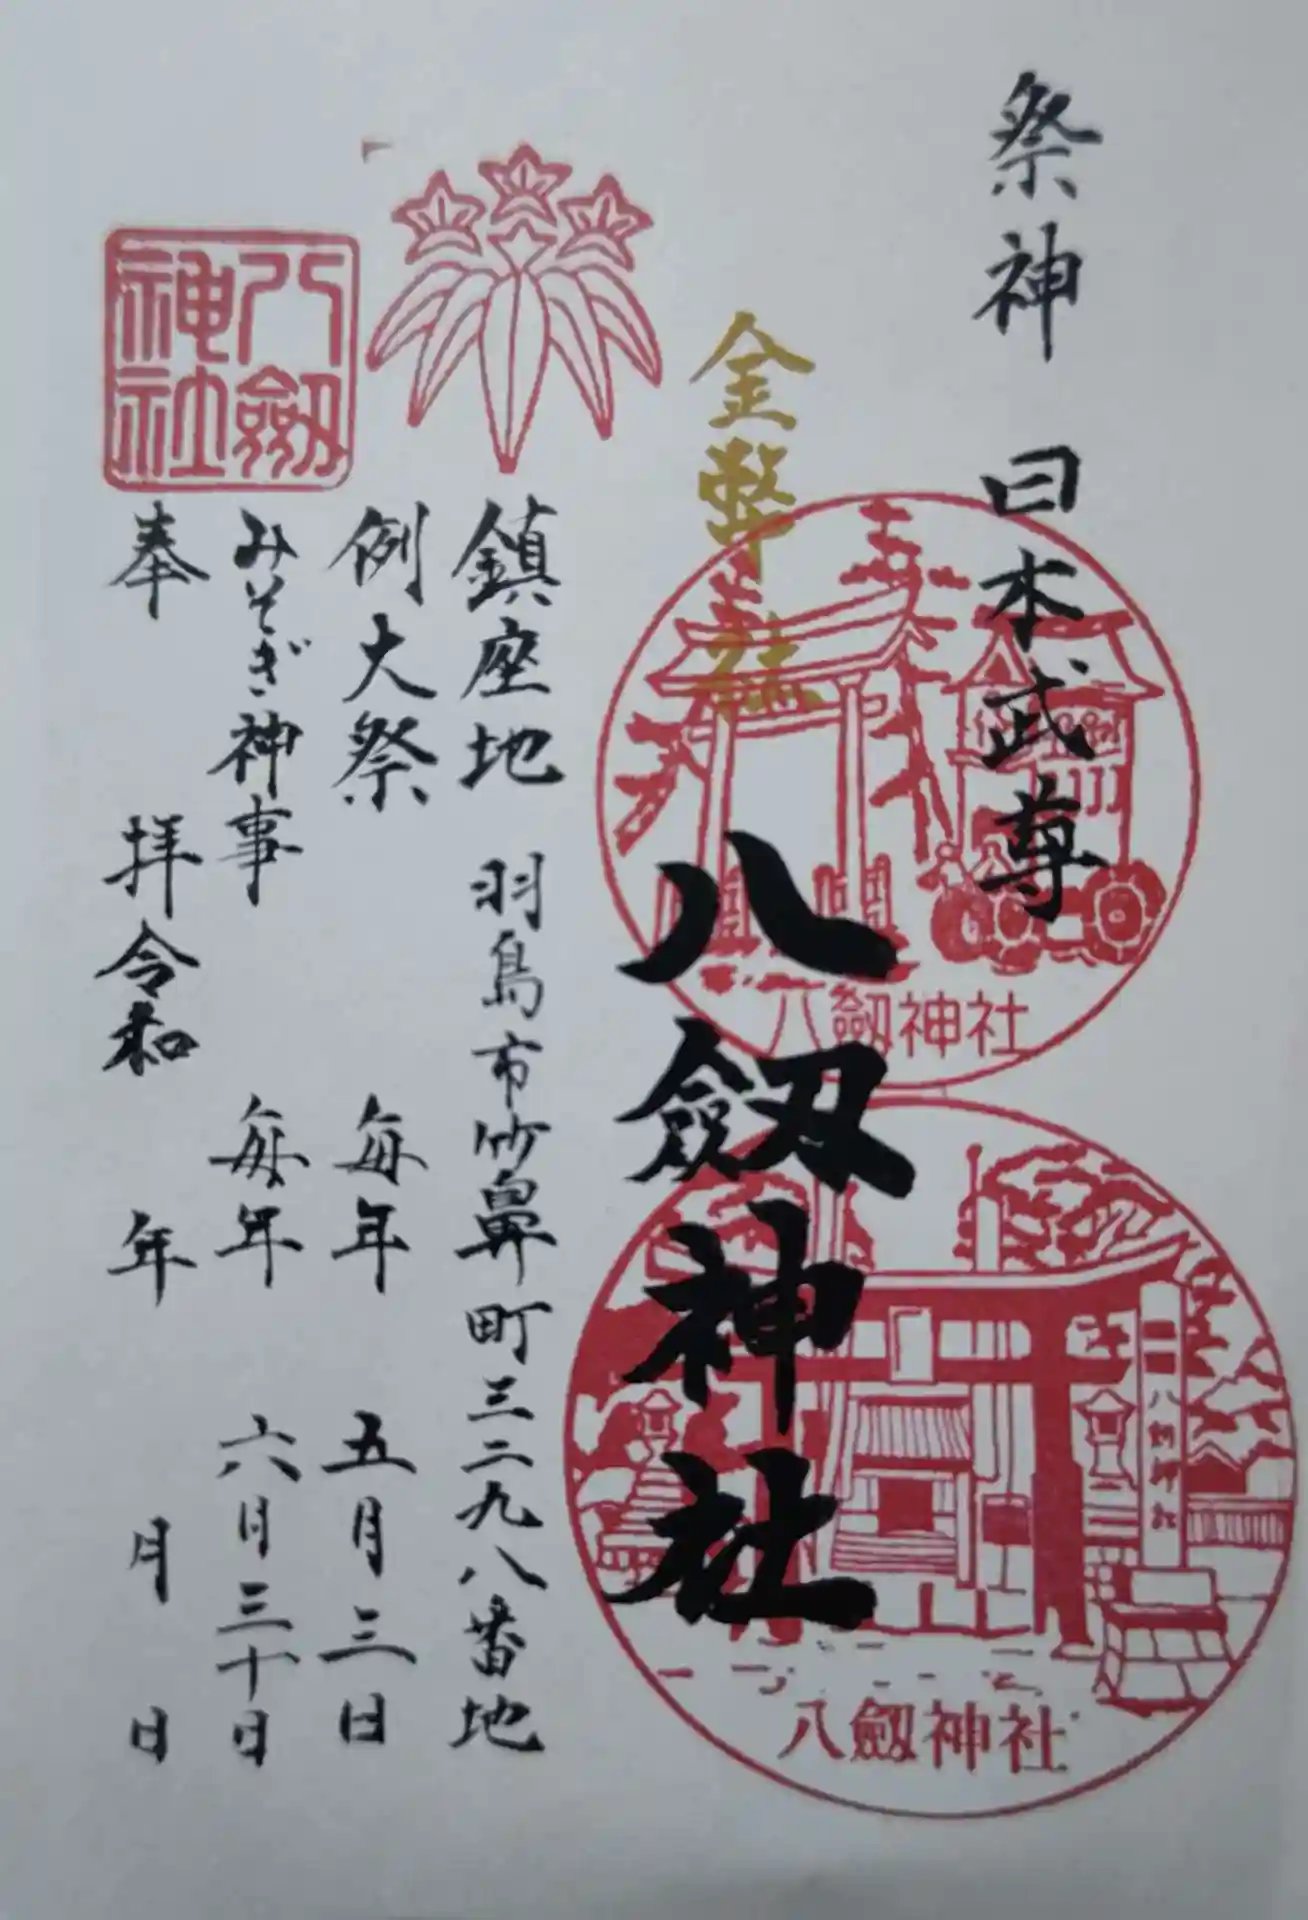 祭神 日本武尊
金幣社
八劔神社
八劔神社
八劔神社
八劔神社
鎮座地 羽島市竹鼻町三二九八番地
例大祭 毎年 五月三日
みそぎ神事 毎年 六月三十日
八劔
神社
奉拝 令和 年 月 日